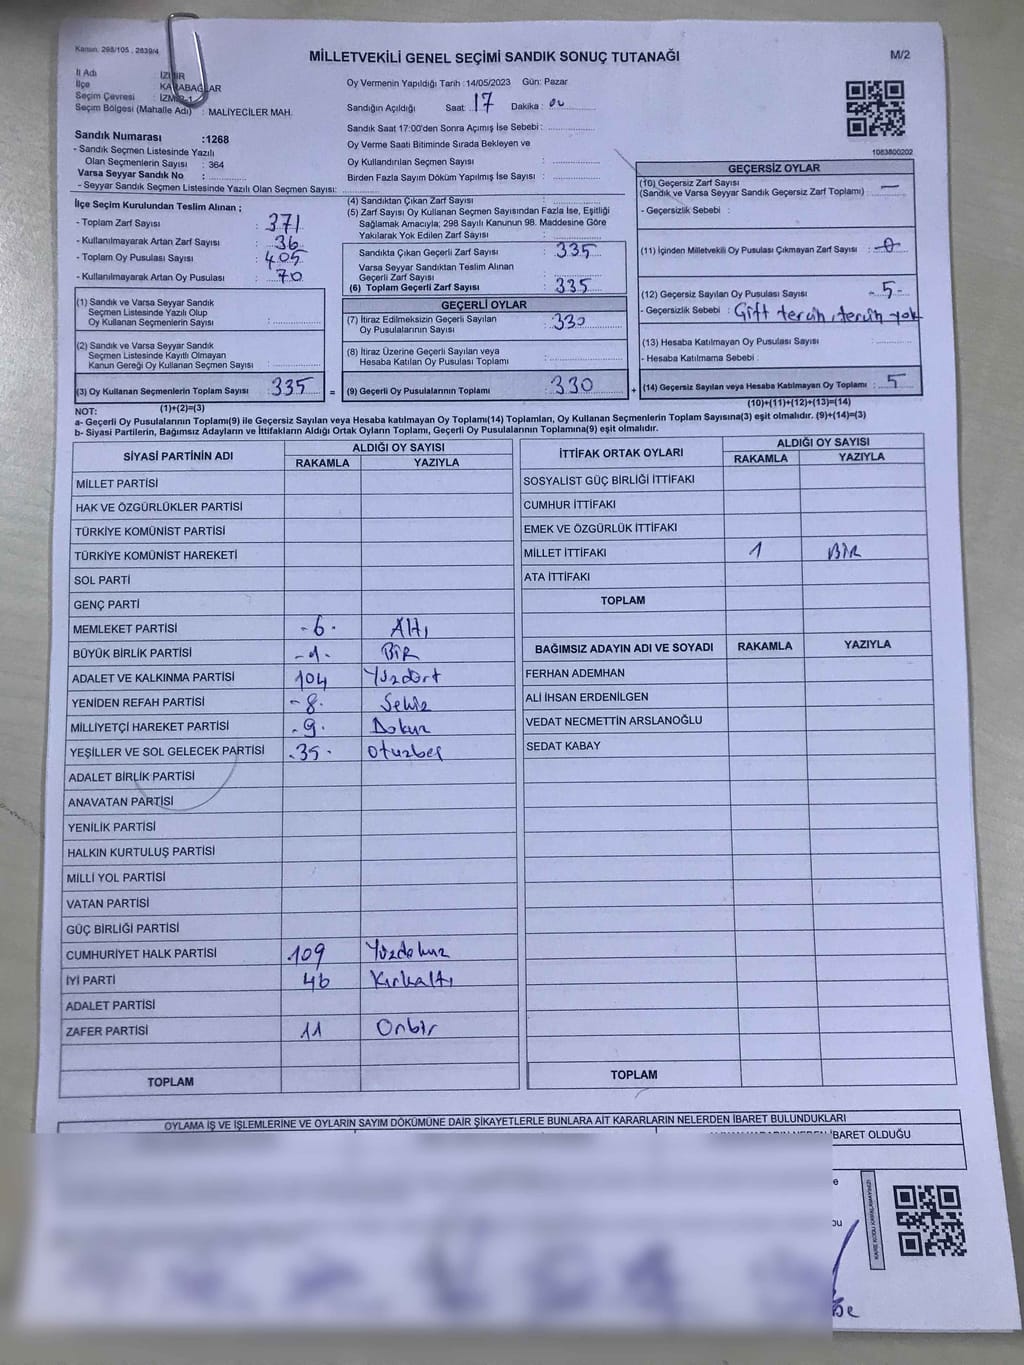 Kanun: 298/105 , 2839/4
MİLLETVEKİLİ GENEL SEÇİMİ SANDIK SONUÇ TUTANAĞI
M/2
İl Adı : İZMİR
İlçe : KARABAĞLAR
Seçim Çevresi : İZMİR-1
Seçim Bölgesi (Mahalle Adı) : MALİYECİLER MAH.
Oy Vermenin Yapıldığı Tarih :14/05/2023 Gün: Pazar
Sandığın Açıldığı Saat: 17 Dakika : 00
Sandık Saat 17:00'den Sonra Açımış İse Sebebi :
Oy Verme Saati Bitiminde Sırada Bekleyen ve
Oy Kullandırılan Seçmen Sayısı :
Birden Fazla Sayım Döküm Yapılmış İse Sayısı :
1083800202
Sandık Numarası :1268
- Sandık Seçmen Listesinde Yazılı
Olan Seçmenlerin Sayısı : 364
Varsa Seyyar Sandık No :
- Seyyar Sandık Seçmen Listesinde Yazılı Olan Seçmen Sayısı:
İlçe Seçim Kurulundan Teslim Alınan ;
- Toplam Zarf Sayısı : 371
- Kullanılmayarak Artan Zarf Sayısı : 36
- Toplam Oy Pusulası Sayısı : 405
- Kullanılmayarak Artan Oy Pusulası : 70
(1) Sandık ve Varsa Seyyar Sandık
Seçmen Listesinde Yazılı Olup
Oy Kullanan Seçmenlerin Sayısı :
(2) Sandık ve Varsa Seyyar Sandık
Seçmen Listesinde Kayıtlı Olmayan
Kanun Gereği Oy Kullanan Seçmenlerin Sayısı :
(3) Oy Kullanan Seçmenlerin Toplam Sayısı : 335 =
(1)+(2)=(3)
(4) Sandıktan Çıkan Zarf Sayısı :
(5) Zarf Sayısı Oy Kullanan Seçmen Sayısından Fazla İse, Eşitliği
Sağlamak Amacıyla; 298 Sayılı Kanunun 98. Maddesine Göre
Yakılarak Yok Edilen Zarf Sayısı :
Sandıkta Çıkan Geçerli Zarf Sayısı : 335
Varsa Seyyar Sandıktan Teslim Alınan
Geçerli Zarf Sayısı :
(6) Toplam Geçerli Zarf Sayısı : 335
GEÇERLİ OYLAR
(7) İtiraz Edilmeksizin Geçerli Sayılan
Oy Pusulalarının Sayısı : 330
(8) İtiraz Üzerine Geçerli Sayılan veya
Hesaba Katılan Oy Pusulası Toplamı :
(9) Geçerli Oy Pusulalarının Toplamı : 330 +
GEÇERSİZ OYLAR
(10) Geçersiz Zarf Sayısı
(Sandık ve Varsa Seyyar Sandık Geçersiz Zarf Toplamı) : —
- Geçersizlik Sebebi :
(11) İçinden Milletvekili Oy Pusulası Çıkmayan Zarf Sayısı : 0
(12) Geçersiz Sayılan Oy Pusulası Sayısı : -5-
- Geçersizlik Sebebi : Çift tercih, tercih yok
(13) Hesaba Katılmayan Oy Pusulası Sayısı :
- Hesaba Katılmama Sebebi :
(14) Geçersiz Sayılan veya Hesaba Katılmayan Oy Toplamı : 5
(10)+(11)+(12)+(13)=(14)
NOT:
a- Geçerli Oy Pusulaların Toplamı(9) ile Geçersiz Sayılan veya Hesaba katılmayan Oy Toplamı(14) Toplamları, Oy Kullanan Seçmenlerin Toplam Sayısına(3) eşit olmalıdır. (9)+(14)=(3)
b- Siyasi Partilerin, Bağımsız Adayların ve İttifakların Aldığı Ortak Oyların Toplamı, Geçerli Oy Pusulalarının Toplamına(9) eşit olmalıdır.
SİYASİ PARTİNİN ADI
ALDIĞI OY SAYISI
RAKAMLA YAZIYLA
MİLLET PARTİSİ
HAK VE ÖZGÜRLÜKLER PARTİSİ
TÜRKİYE KOMÜNİST PARTİSİ
TÜRKİYE KOMÜNİST HAREKETİ
SOL PARTİ
GENÇ PARTİ
MEMLEKET PARTİSİ -6- Altı
BÜYÜK BİRLİK PARTİSİ -1- BİR
ADALET VE KALKINMA PARTİSİ 104 Yüzdört
YENİDEN REFAH PARTİSİ -8- Sekiz
MİLLİYETÇİ HAREKET PARTİSİ -9- Dokuz
YEŞİLLER VE SOL GELECEK PARTİSİ -35- otuzbeş
ADALET BİRLİK PARTİSİ
ANAVATAN PARTİSİ
YENİLİK PARTİSİ
HALKIN KURTULUŞ PARTİSİ
MİLLİ YOL PARTİSİ
VATAN PARTİSİ
GÜÇ BİRLİĞİ PARTİSİ
CUMHURİYET HALK PARTİSİ 109 Yüzdokuz
İYİ PARTİ 46 Kırkaltı
ADALET PARTİSİ
ZAFER PARTİSİ 11 Onbir
TOPLAM
İTTİFAK ORTAK OYLARI
ALDIĞI OY SAYISI
RAKAMLA YAZIYLA
SOSYALİST GÜÇ BİRLİĞİ İTTİFAKI
CUMHUR İTTİFAKI
EMEK VE ÖZGÜRLÜK İTTİFAKI
MİLLET İTTİFAKI 1 BİR
ATA İTTİFAKI
TOPLAM
BAĞIMSIZ ADAYIN ADI VE SOYADI RAKAMLA YAZIYLA
FERHAN ADEMHAN
ALİ İHSAN ERDENİLGEN
VEDAT NECMETTİN ARSLANOĞLU
SEDAT KABAY
TOPLAM
OYLAMA İŞ VE İŞLEMLERİNE VE OYLARIN SAYIM DÖKÜMÜNE DAİR ŞİKAYETLERLE BUNLARA AİT KARARLARIN NELERDEN İBARET BULUNDUKLARI
İBARET OLDUĞU